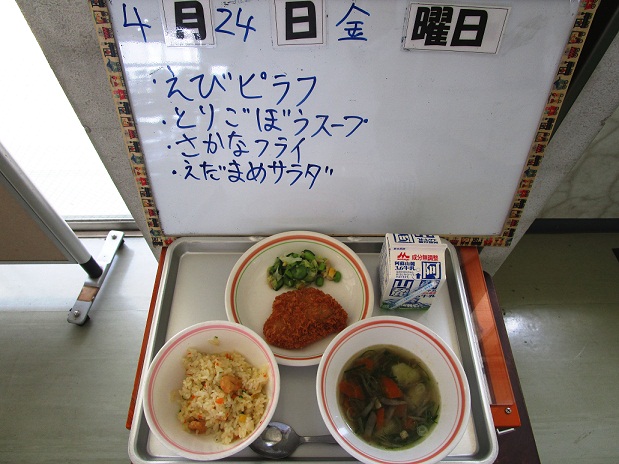 4月24日金曜日
・えびピラフ
・とりごぼうスープ
・さかなフライ
・えだまめサラダ
成分無調整